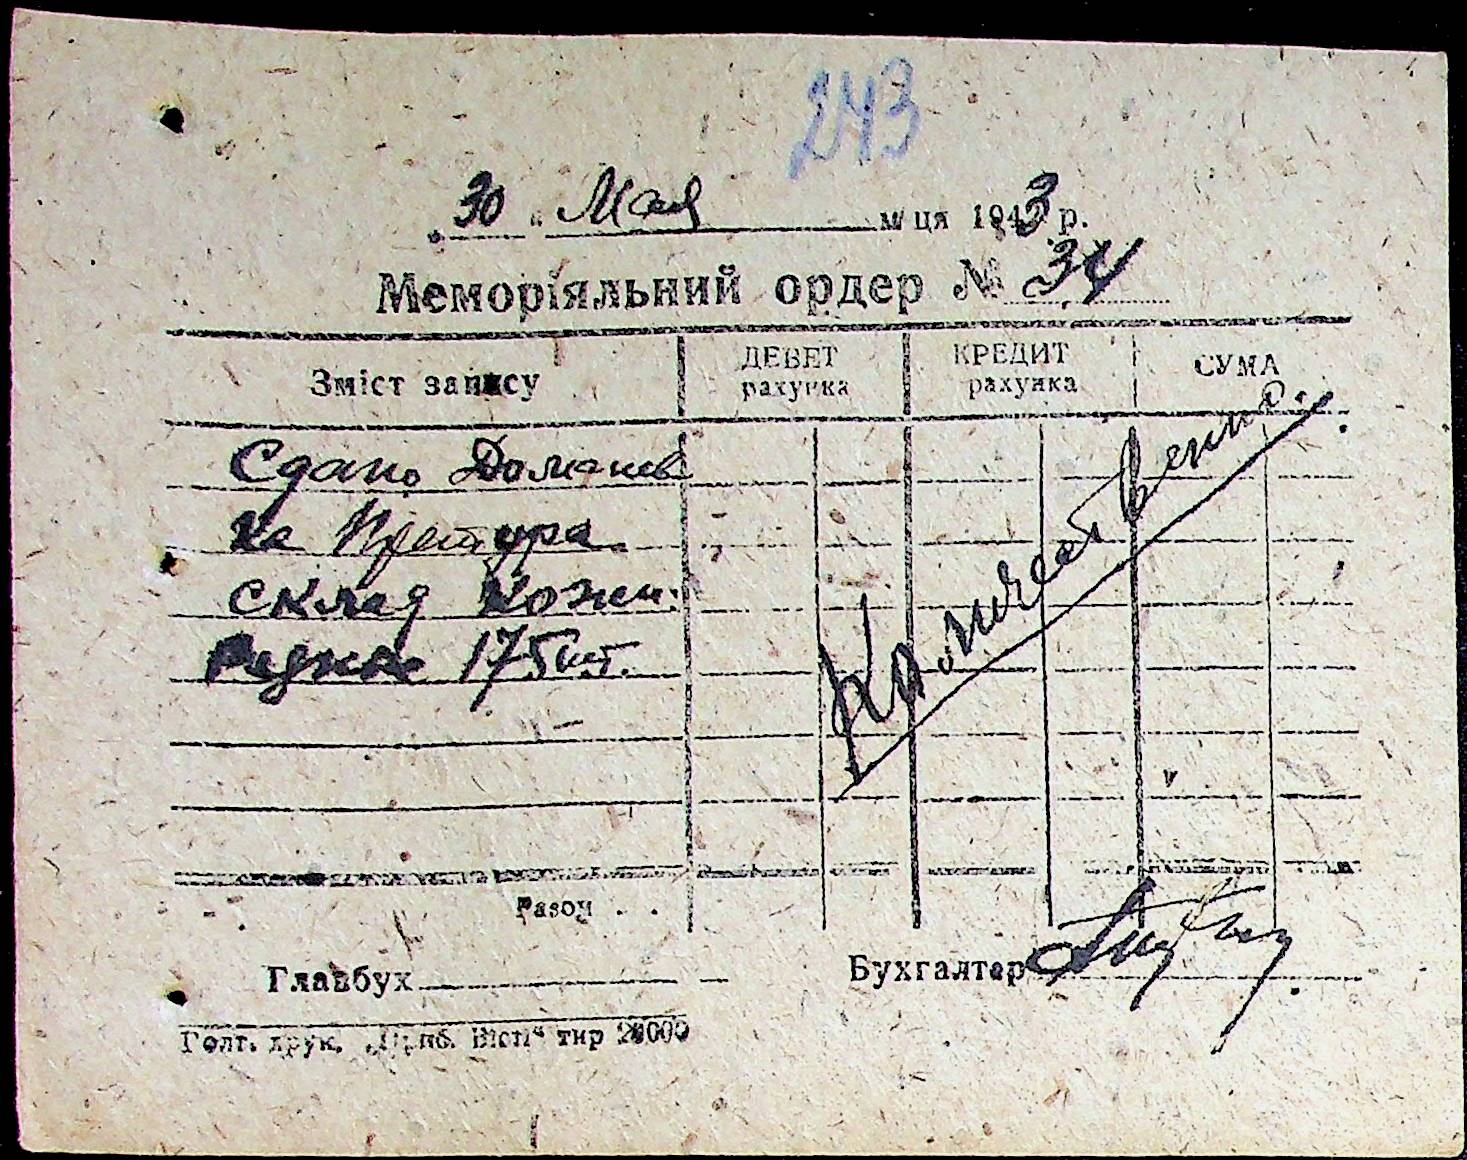 243
30 " Мая м/ця 1943 р.
Меморіяльний ордер № 34
Зміст запису ДЕБЕТ рахунка КРЕДИТ рахунка СУМА
Сдано Доманев
ка Претура
склад Кожи
175 шт.
Количественно.
Разом . .
Главбух Бухгалтер
Голт. друк. „Приб. Вісті“ тир 20000